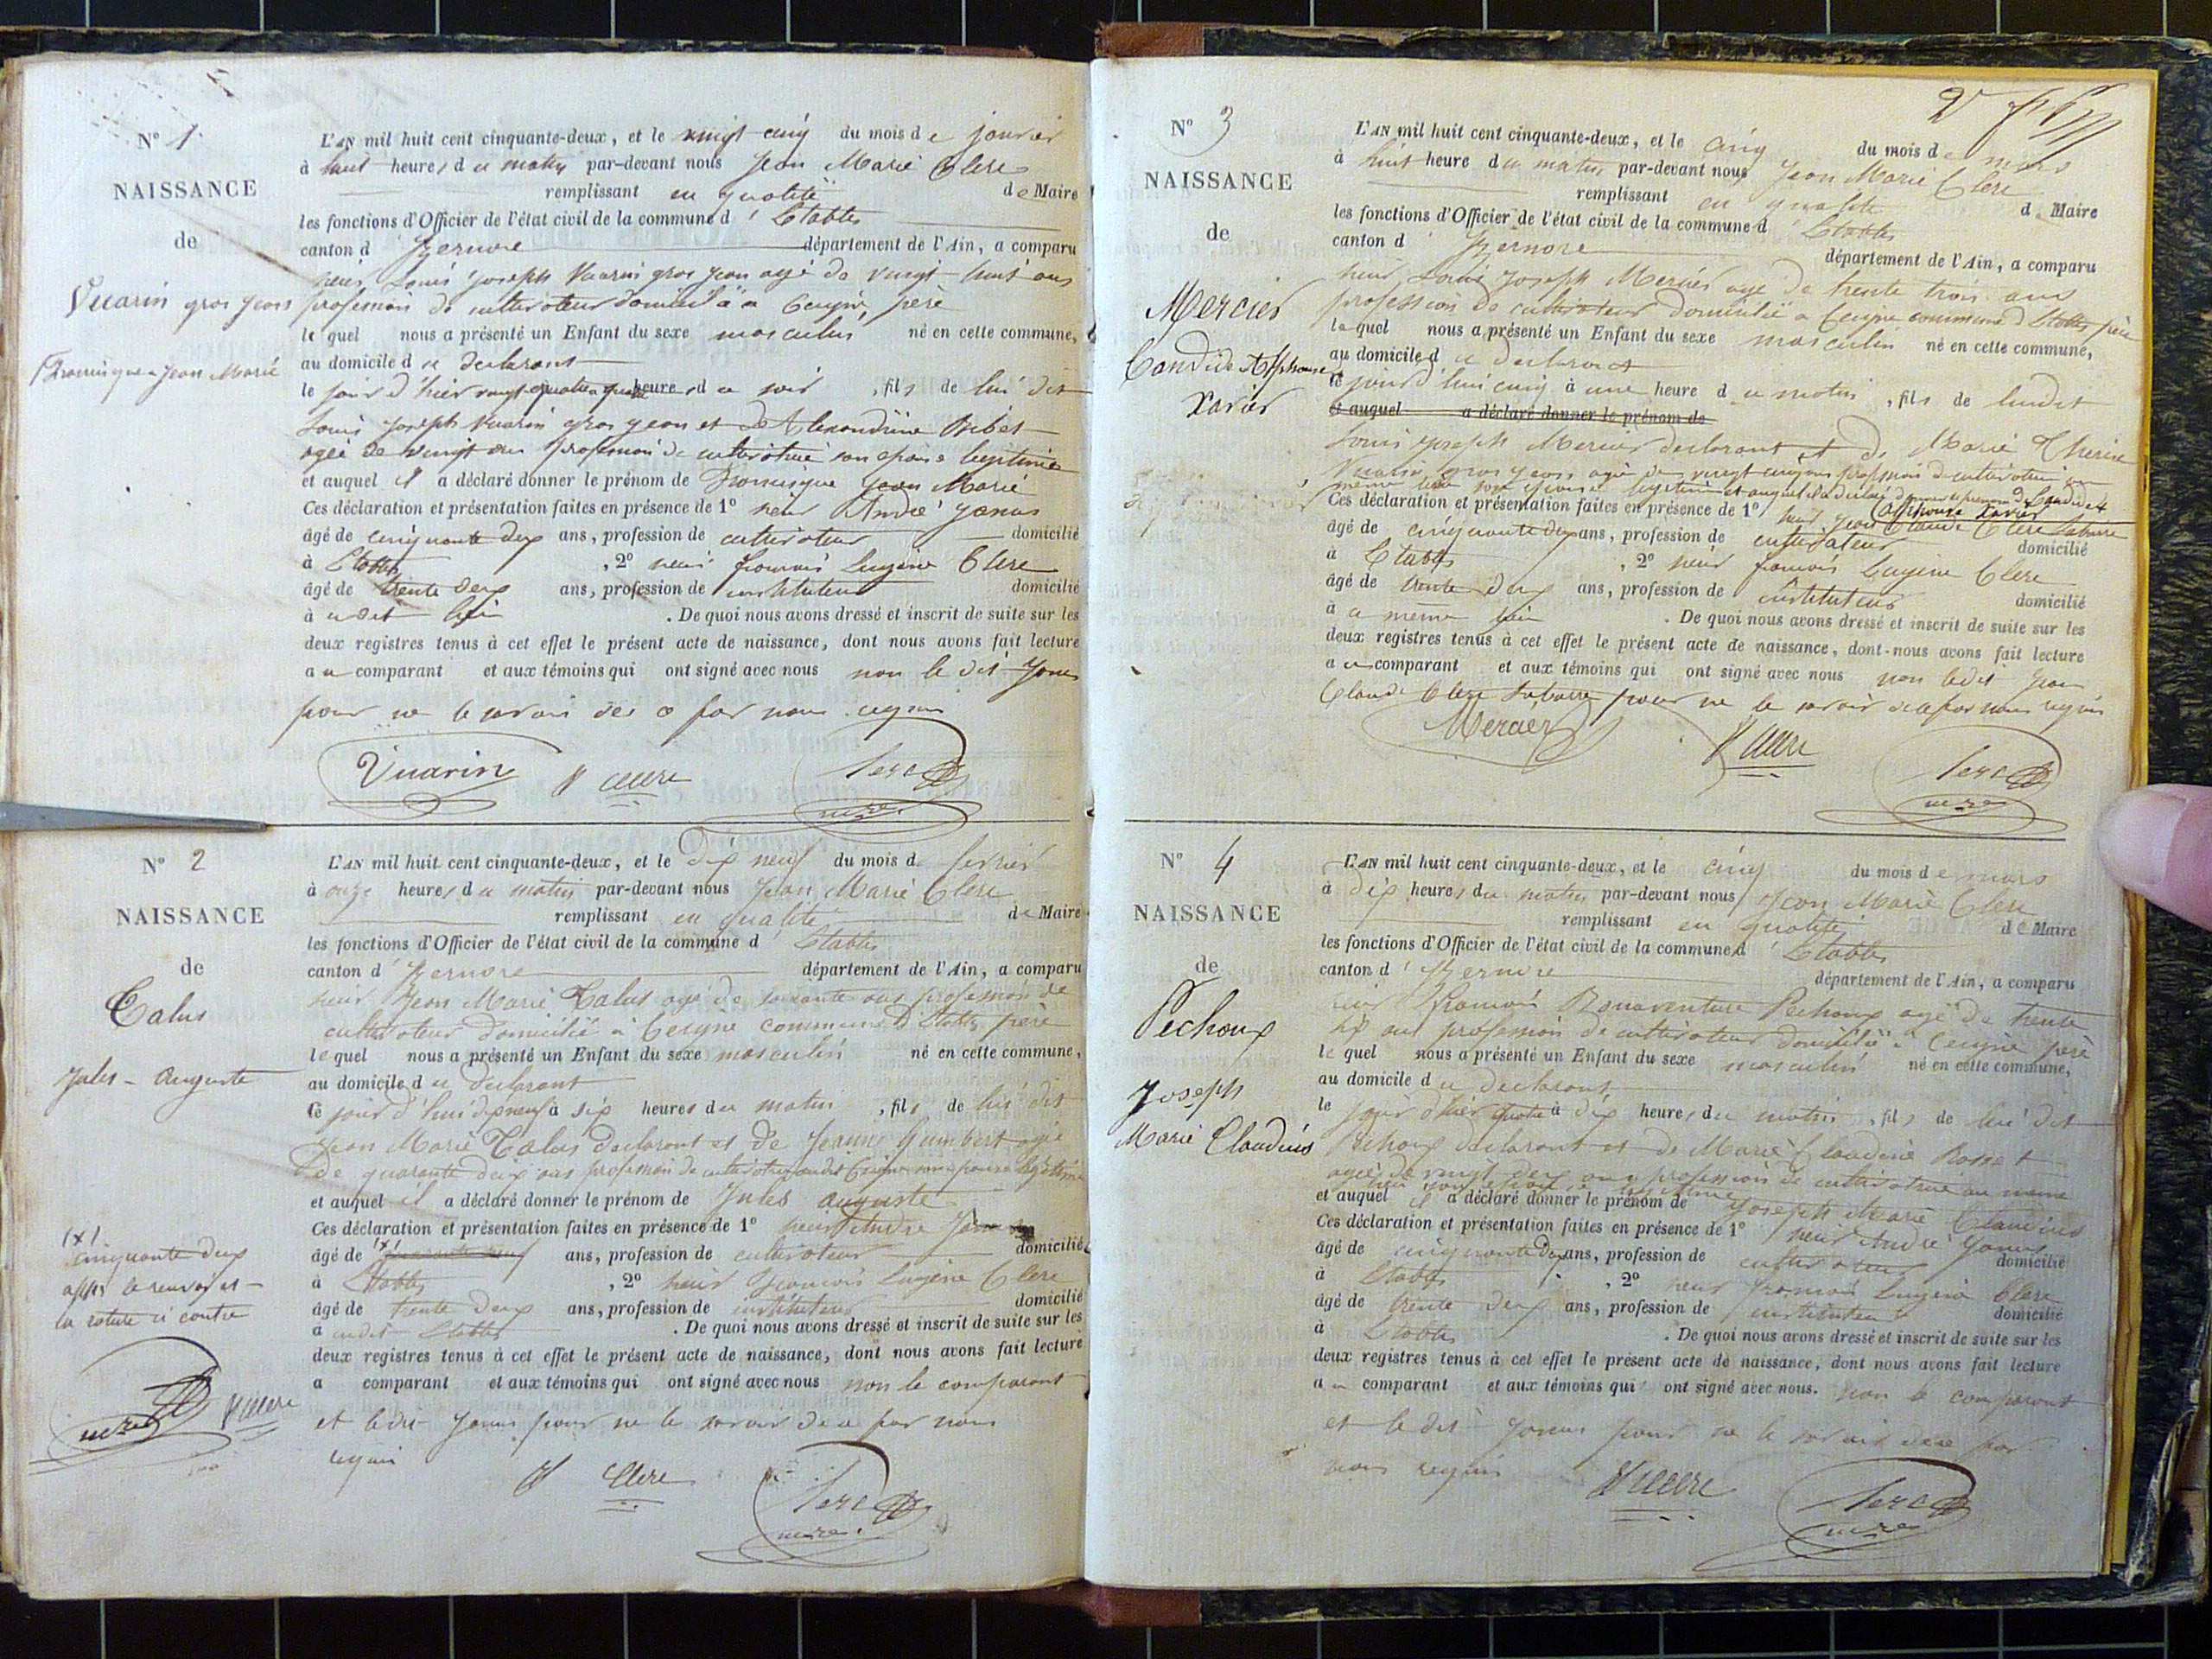 N° 1
NAISSANCE
de
Vuarin gros Jean
Dominique Jean Marié
L'AN mil huit cent cinquante-deux, et le vingt cinq du mois de janvier
à huit heures du matin par-devant nous Jean Marié Clerc
remplissant en qualité de Maire
les fonctions d'Officier de l'état civil de la commune d'Etables
canton d'Izernore département de l'Ain, a comparu
sieur Louis Joseph Vuarin gros Jean agé de vingt huit ans
profession de cultivateur domicilié a Ceigne, père
lequel nous a présenté un Enfant du sexe masculin né en cette commune,
au domicile du declarant
le jour d'hier vingt quatre a quatre heures du soir, fils de lui dit
Louis Joseph Vuarin gros Jean et de Alexandrine
agée de vingt ans profession de cultivatrice son épouse légitime
et auquel il a déclaré donner le prénom de Dominique Jean Marié
Ces déclaration et présentation faites en présence de 1° sieur André Janus
âgé de cinquante deux ans, profession de cultivateur domicilié
à Etables, 2° sieur françois Eugène Clerc
âgé de trente deux ans, profession de instituteur domicilié
à udit lieu. De quoi nous avons dressé et inscrit de suite sur les
deux registres tenus à cet effet le présent acte de naissance, dont nous avons fait lecture
au comparant et aux témoins qui ont signé avec nous non le dit Janus
pour ne le savoir de ce par nous requis
Vuarin Clerc Clerc
maire
N° 2
NAISSANCE
de
Talus
Jules - Auguste
(x)
cinquante deux
approuvé le renvoi et
la rature ci contre
maire Clerc
L'AN mil huit cent cinquante-deux, et le dix neuf du mois de fevrier
à onze heures du matin par-devant nous Jean Marié Clerc
remplissant en qualité de Maire
les fonctions d'Officier de l'état civil de la commune d'Etables
canton d'Izernore département de l'Ain, a comparu
sieur Jean Marié Talus agé de soixante ans profession de
cultivateur domicilié à Ceigne commune d'Etables père
lequel nous a présenté un Enfant du sexe masculin né en cette commune,
au domicile du declarant
ce jour d'hui dix neuf à six heures du matin, fils de lui dit
Jean Marié Talus declarant et de Jeanne Humbert agée
de quarante deux ans profession de cultivatrice audit Ceigne son épouse légitime
et auquel il a déclaré donner le prénom de Jules Auguste
Ces déclaration et présentation faites en présence de 1° sieur André Janus
âgé de (x) ans, profession de cultivateur domicilié
à Etables, 2° sieur françois Eugène Clerc
âgé de trente deux ans, profession de instituteur domicilié
à audit Etables. De quoi nous avons dressé et inscrit de suite sur les
deux registres tenus à cet effet le présent acte de naissance, dont nous avons fait lecture
a comparant et aux témoins qui ont signé avec nous non le comparant
et ledit Janus pour ne le savoir de ce par nous
requis
Clerc Clerc
maire
N° 3
NAISSANCE
de
Mercier
Candide Alphonse
Xavier
L'AN mil huit cent cinquante-deux, et le cinq du mois de mars
à huit heure du matin par-devant nous Jean Marié Clerc
remplissant en qualité d Maire
les fonctions d'Officier de l'état civil de la commune d'Etables
canton d'Izernore département de l'Ain, a comparu
sieur Louis Joseph Mercier agé de trente trois ans
profession de cultivateur domicilié a Ceigne commune d'Etables père
lequel nous a présenté un Enfant du sexe masculin né en cette commune,
au domicile du declarant
ce jourd'hui cinq à une heure du matin, fils de ludit
et auquel a déclaré donner le prénom de
Louis Joseph Mercier declarant et de Marié Thérèse
Vuarin gros Jean agée de vingt cinq ans profession de cultivatrice au
même lieu son épouse légitime et auquel il a déclaré donner le prénom de Candide
Alphonse Xavier
Ces déclaration et présentation faites en présence de 1° sieur Jean Claude Clerc Labarre
âgé de cinquante deux ans, profession de cultivateur domicilié
à Etables, 2° sieur françois Eugène Clerc
âgé de trente deux ans, profession de instituteur domicilié
à ce même lieu. De quoi nous avons dressé et inscrit de suite sur les
deux registres tenus à cet effet le présent acte de naissance, dont nous avons fait lecture
au comparant et aux témoins qui ont signé avec nous non ledit Jean
Claude Clerc Labarre pour ne le savoir de ce par nous requis
Mercier Clerc
Clerc
maire
N° 4
NAISSANCE
de
Pechoux
Joseph
Marié Claudius
L'AN mil huit cent cinquante-deux, et le cinq du mois de mars
à dix heures du matin par-devant nous Jean Marié Clerc
remplissant en qualité de Maire
les fonctions d'Officier de l'état civil de la commune d'Etables
canton d'Izernore département de l'Ain, a comparu
sieur françois Bonaventure Pechoux agé de trente
six ans profession de cultivateur domicilié à Ceigne père
lequel nous a présenté un Enfant du sexe masculin né en cette commune,
au domicile du declarant
le jour d'hier quatre à dix heures du matin, fils de lui dit
Pechoux declarant et de Marié Claudine Rosset
agée de vingt deux ans profession de cultivatrice au même
lieu son épouse légitime
et auquel il a déclaré donner le prénom de Joseph Marié Claudius
Ces déclaration et présentation faites en présence de 1° sieur André Janus
âgé de cinquante deux ans, profession de cultivateur domicilié
à Etables, 2° sieur françois Eugène Clerc
âgé de trente deux ans, profession de instituteur domicilié
à Etables. De quoi nous avons dressé et inscrit de suite sur les
deux registres tenus à cet effet le présent acte de naissance, dont nous avons fait lecture
au comparant et aux témoins qui ont signé avec nous. non le comparant
et le dit Janus pour ne le savoir de ce par
nous requis Clerc Clerc
maire